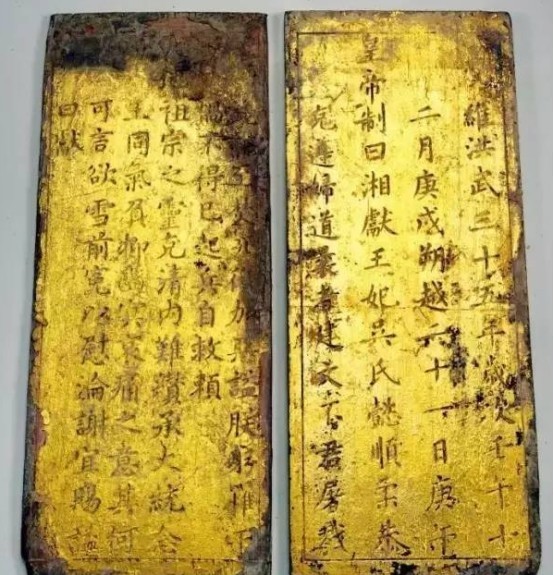 維洪武三十五年歲次壬午十
二月庚戌朔越十一日庚申
皇帝制曰湘獻王妃吳氏懿順柔恭
克遵婦道曩者建文不君屠戮
加惡謚朕罹于
禍不得已起兵自救賴
祖宗之靈克清内難纘承大統念
王同氣負哀痛之意其何
可言欲雪前冤以慰淪謝宜賜謚
曰獻